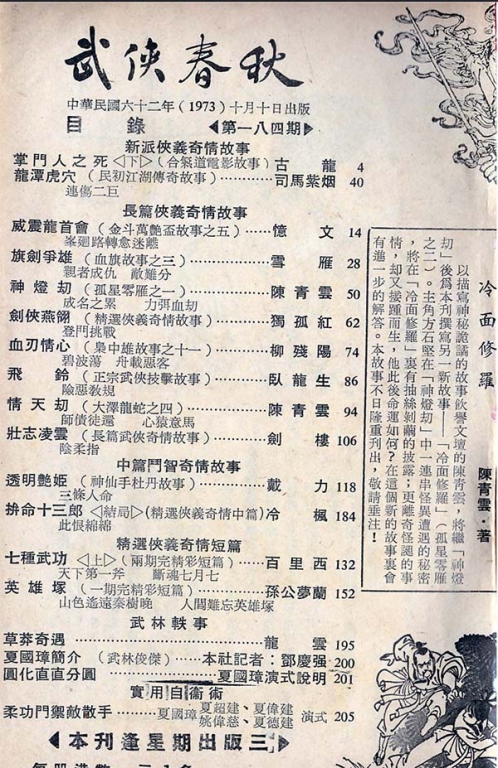 武俠春秋
中華民國六十二年（1973）十月十日出版
目錄 ◀第一八四期▶
新派俠義奇情故事
掌門人之死〈下〉（合氣道電影故事）古龍 4
龍潭虎穴（民初江湖傳奇故事）…………司馬紫烟 40
連傷二巨
長篇俠義奇情故事
威震龍首會（金斗萬艷盃故事之五）……憶文 14
峯廻路轉愈迷離
旗劍爭雄（血旗故事之三）……………雪雁 28
親者成仇 敵難分
神燈劫（孤星零雁之一）………………陳青雲 50
成名之累 力弭血劫
劍俠燕翎（精選俠義奇情故事）…………獨孤紅 62
登門挑戰
血刃情心（梟中雄故事之十一）…………柳殘陽 74
碧波蕩 舟載惡客
飛鈴（正宗武俠技擊故事）………臥龍生 86
險惡教規
情天劫（大澤龍蛇之四）………………陳青雲 94
師債徒還 心猿意馬
壯志凌雲（長篇武俠奇情故事）…………劍樓 106
陰柔指
中篇鬥智奇情故事
透明艷姬（神仙手杜丹故事）……………戴力 118
三條人命
拚命十三郎〈結局〉（精選俠義奇情中篇）冷楓 184
此恨綿綿
精選俠義奇情短篇
七種武功〈上〉（兩期完精彩短篇）……百里西 132
天下第一斧 斷魂七月七
英雄塚（一期完精彩短篇）………孫公夢蘭 152
山色遙遠秦樹晚 人間難忘英雄塚
武林軼事
草莽奇遇……………………………龍雲 195
夏國璋簡介（武林俊傑）………本社記者：鄧慶强 200
圓化直直分圓………………夏國璋演式說明 201
實用自衞術
柔功門禦敵散手………夏國璋 夏超建、夏偉建 姚偉慈、夏德建 演式 205
◀本刊逢星期三出版▶
冷面修羅
陳青雲・著
以描寫神秘詭譎的故事飲譽文壇的陳青雲，將繼「神燈
劫」後為本刊撰寫另一新故事——「冷面修羅」（孤星零雁
之二）。主角方石堅在「神燈劫」中一連串怪異遭遇的秘密
，將在「冷面修羅」裏有抽絲剝繭的披露；更離奇怪誕的事
情，却又接踵而生，他此後命運如何？在這個新的故事裏會
有進一步的解答。本故事不日隆重刊出，敬請垂注！